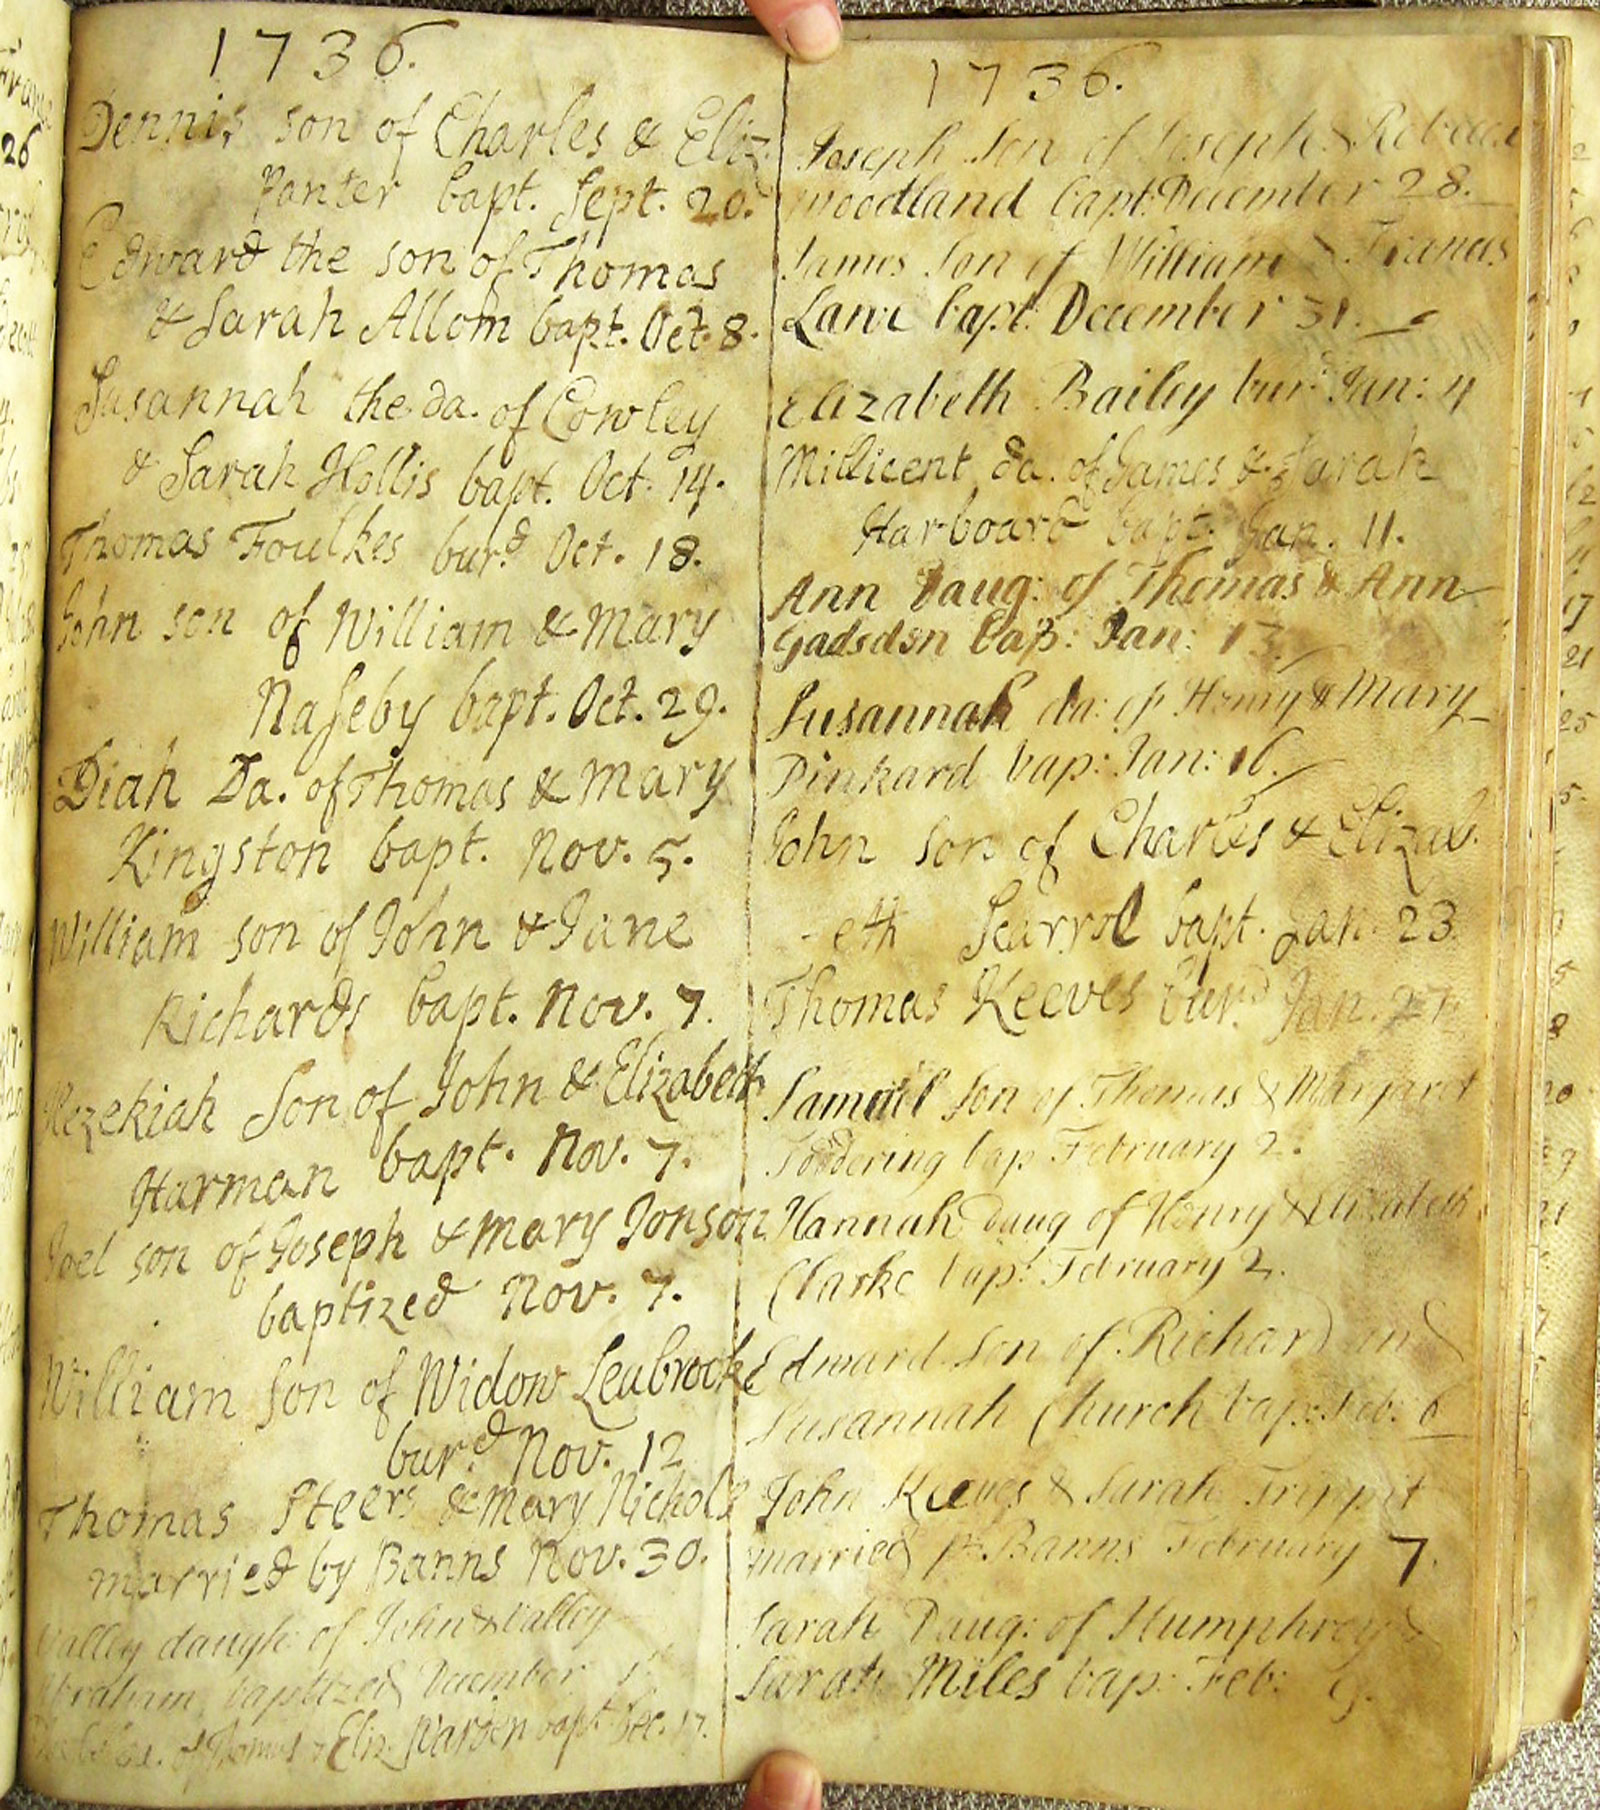 1736.
Dennis son of Charles & Eliz.
Panter bapt. Sept. 20.
Edward the son of Thomas
& Sarah Allom bapt. Oct. 8.
Susannah the da. of Cowley
& Sarah Hollis bapt. Oct. 14.
Thomas Foulkes bur.d Oct. 18.
John son of William & Mary
Naseby bapt. Oct. 29.
Diah Da. of Thomas & Mary
Kingston bapt. Nov. 5.
William son of John & Jane
Richards bapt. Nov. 7.
Hezekiah Son of John & Elizabeth
Harman bapt. Nov. 7.
Joel son of Joseph & Mary Jonson
baptized Nov. 7.
William son of Widow Leabrooke
bur.d Nov. 12
Thomas Steers & Mary Nichols
married by Banns Nov. 30.
Valley daugh: of John & Valley
Abraham baptized December
da. of Thomas & Eliz. Warden bapt Dec. 17.
1736.
Joseph Son of Joseph & Rebecca
Woodland bapt: December 28.
James Son of William & Francis
Lane bapt: December 31.
Elizabeth Bailey bur.d Jan: 4
Millicent da. of James & Sarah
Harboard bapt. Jan. 11.
Ann Daug: of Thomas & Ann
Gadsden bap: Jan: 13.
Susannah da: of Henry & Mary
Pinkard bap: Jan: 16.
John Son of Charles & Elizab.
- eth Scarrol bapt. Jan. 23
Thomas Keeves bur.d Jan. 27
Samuel Son of Thomas & Margaret
bap February 2.
Hannah Daug of Henry & Elizabeth
Clarke bap: February 2.
Edward Son of Richard and
Susannah Church bap: Feb: 6
John Keeves & Sarah Trippit
married p. Banns February 7.
Sarah Daug: of Humphrey &
Sarah Miles bap: Feb: 9.